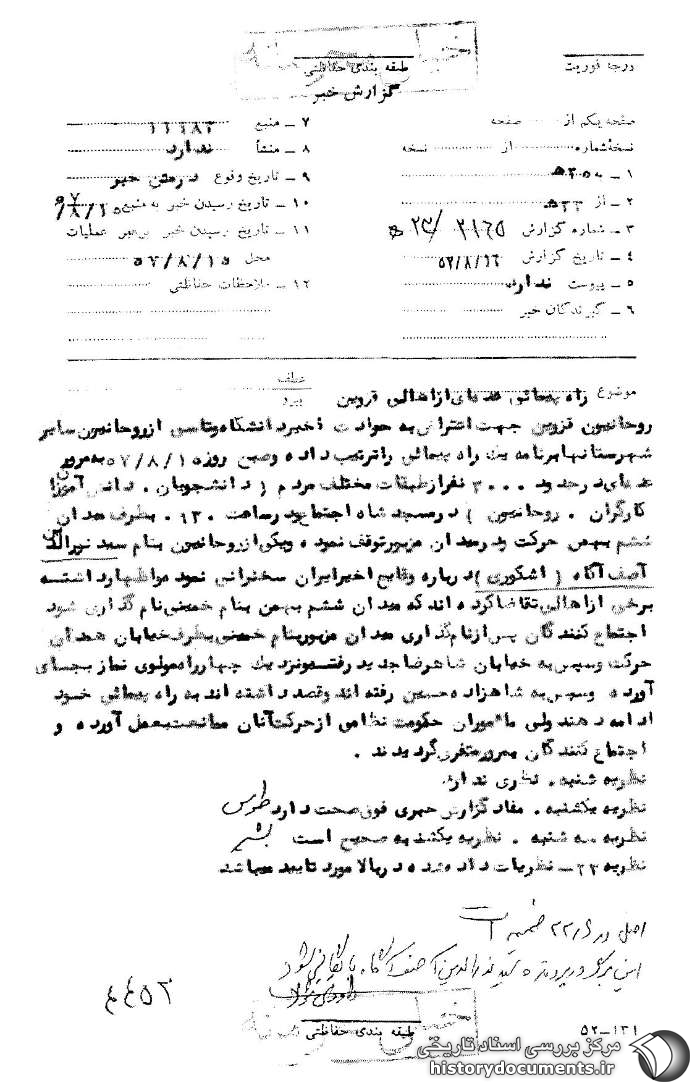 خیلی محرمانه
درجه فوریت
طبقه بندی حفاظتی
گزارش خبر
صفحه یکم از صفحه
نسخه شماره از نسخه
۱ ـ به ۳۵۰ ه‍
۲ ـ از ۳۳ ه‍
۳ ـ شماره گزارش
۴ ـ تاریخ گزارش
۵ ـ پیوست ندارد
۶ ـ گیرندگان خبر
۷ ـ منبع
۸ ـ منشأ ندارد
۹ ـ تاریخ وقوع در متن خبر
۱۰ ـ تاریخ رسیدن خبر به منبع
۱۱ ـ تاریخ رسیدن خبر برهبر عملیات
محل ۵۷/۸/۱۵
۱۲ ـ ملاحظات حفاظتی
عطف
موضوع راه پیمائی عده‌ای از اهالی قزوین
پیرو
روحانیون قزوین جهت اعتراض به حوادث اخیر دانشگاه و تاسی از روحانیون سایر
شهرستانها برنامه یک راه پیمائی را ترتیب داده و صبح روز ۵۷/۸/۱۵ به مرور
عده‌ای در حدود ۳۰۰۰ نفر از طبقات مختلف مردم ( دانشجویان . دانش آموزان
کارگران . روحانیون ) در مسجد شاه اجتماع و در ساعت ۱۳۰۰ بطرف میدان
ششم بهمن حرکت و در میدان مزبور توقف نموده و یکی از روحانیون بنام سید نورالدین
آصف آگاه ( اشکوری ) درباره وقایع اخیر ایران سخنرانی نموده و اظهار داشته
برخی از اهالی تقاضا کرده اند که میدان ششم بهمن بنام خمینی نام گذاری شود
اجتماع کنندگان پس از نام گذاری میدان مزبور بنام خمینی بطرف خیابان همدان
حرکت و سپس به خیابان شاهرضا جدید رفته و نزدیک چهارراه مولوی نماز بجای
آورده و سپس به شاهزاده حسین رفته اند و قصد داشته اند به راه پیمائی خود
ادامه دهند ولی مأموران حکومت نظامی از حرکت آنان ممانعت بعمل آورده و
اجتماع کنندگان بمرور متفرق گردیدند .
نظریه شنبه . نظری ندارد
نظریه یکشنبه . مفاد گزارش خبری فوق صحت دارد طوسی
نظریه سه شنبه . نظریه یکشنبه صحیح است
نظریه ۳۳ ـ نظریات داده شده در بالا مورد تایید میباشد
اصل در ضمیمه است
این برگ در پرونده سید نورالدین آصف آگاه بایگانی شود
۴۴۵۳
طبقه بندی حفاظتی
خیلی محرمانه
۵۲-۱۳۱
مرکز بررسی اسناد تاریخی
historydocuments.ir